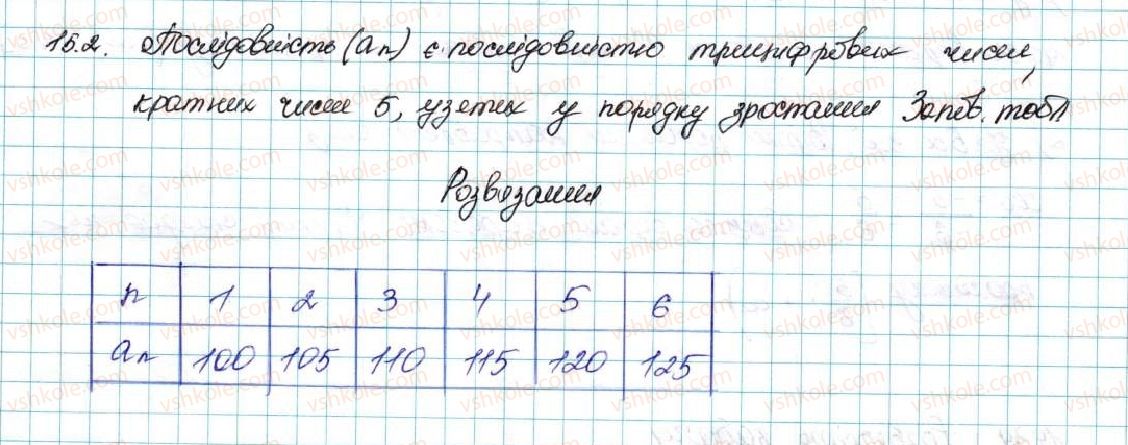 15.2. Послідовність (aₙ) є послідовністю трицифрових чисел,
кратних числу 5, узятих у порядку зростання Запов. табл
Розвязання
n 1 2 3 4 5 6
aₙ 100 105 110 115 120 125